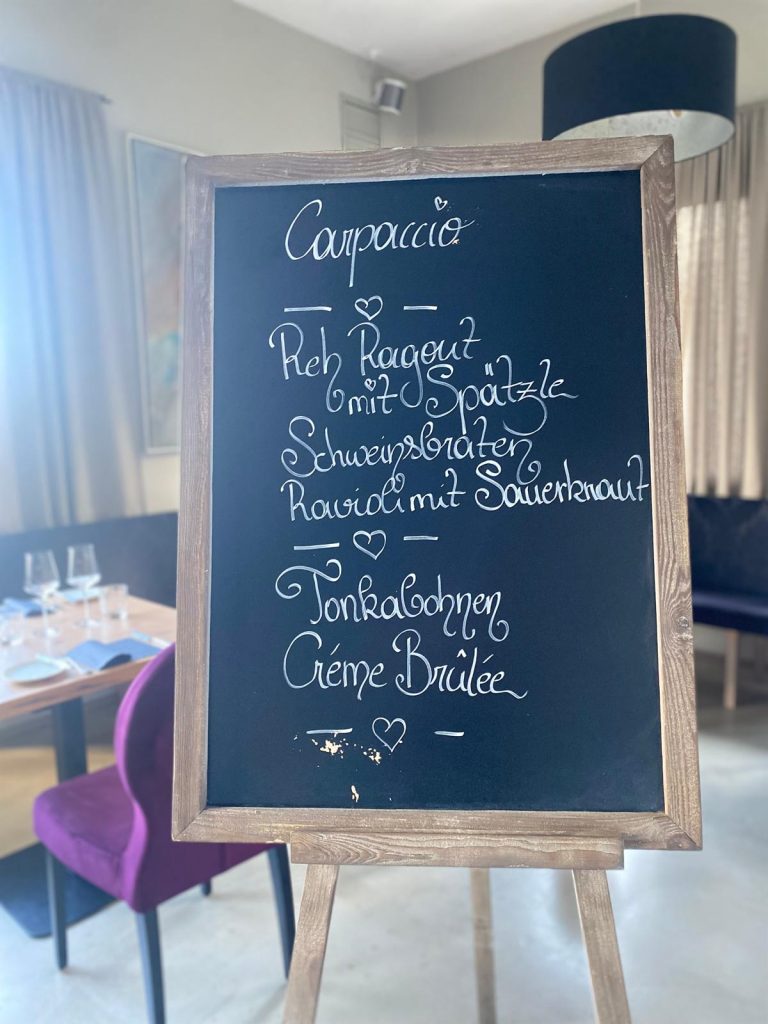 Carpaccio
Reh Ragout
mit Spätzle
Schweinsbraten
Ravioli mit Sauerkraut
Tonkabohnen
Créme Brûlée